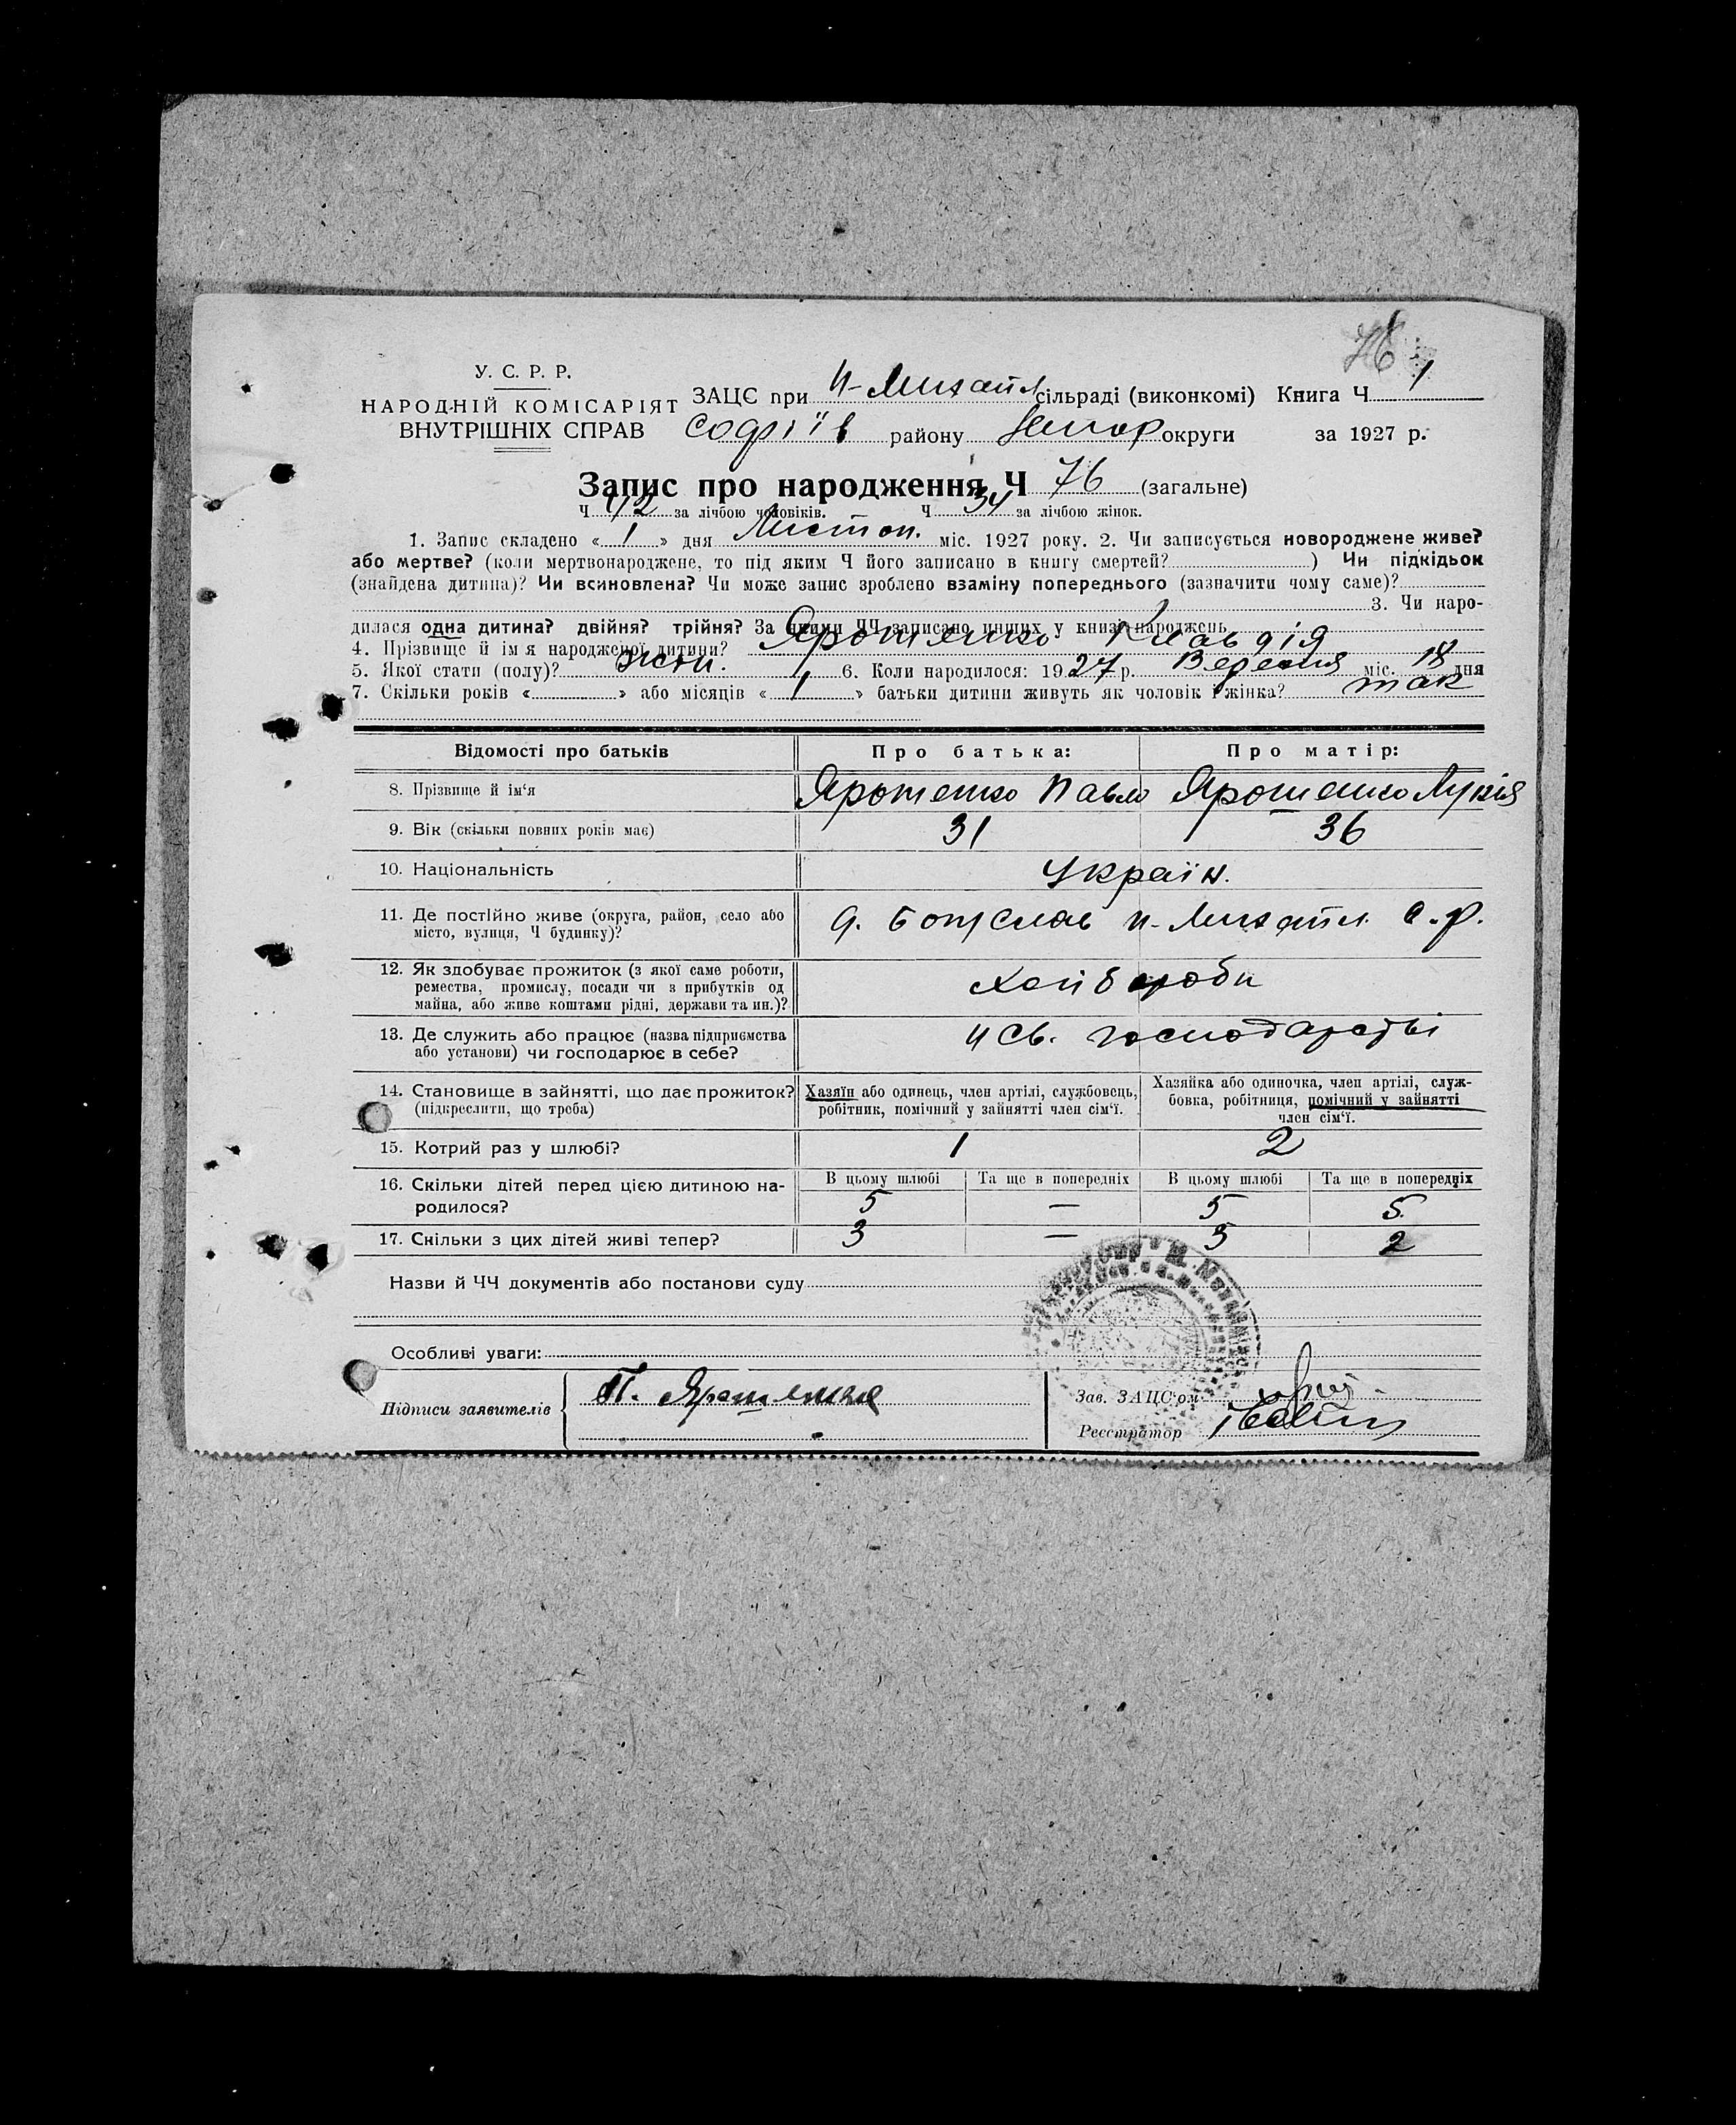 76
У. С. Р. Р.
НАРОДНІЙ КОМІСАРІЯТ
ВНУТРІШНІХ СПРАВ
ЗАЦС при Н-Михайл сільраді (виконкомі) Книга Ч 1
Софіїв району округи за 1927 р.
Запис про народження Ч 76 (загальне)
Ч 42 за лічбою чоловіків. Ч 34 за лічбою жінок.
1. Запис складено « 1 » дня Листоп. міс. 1927 року. 2. Чи записується новороджене живе?
або мертве? (коли мертвонароджене, то під яким Ч його записано в книгу смертей? ) Чи підкідьок
(знайдена дитина)? Чи всиновлена? Чи може запис зроблено взаміну попереднього (зазначити чому саме)?
3. Чи наро-
дилася одна дитина? двійня? трійня? За якими ЧЧ записано инших у книзі народжень
4. Прізвище й ім я народженої дитини? Ярошенко Клавдія
5. Якої стати (полу)? жен. 6. Коли народилося: 1927 р. Вересня міс. 18 дня
7. Скільки років « » або місяців « 1 » батьки дитини живуть як чоловік і жінка? так
Відомості про батьків Про батька: Про матір:
8. Прізвище й ім'я Ярошенко Павло Ярошенко Лукія
9. Вік (скільки повних років має) 31 36
10. Національність Україн.
11. Де постійно живе (округа, район, село або
місто, вулиця, Ч будинку)? Н-Михайл. с.р.
12. Як здобуває прожиток (з якої саме роботи,
ремества, промислу, посади чи з прибутків од
майна, або живе коштами рідні, держави та ин.)? хліборобн
13. Де служить або працює (назва підприємства
або установи) чи господарює в себе? св. господарстві
14. Становище в зайнятті, що дає прожиток?
(підкреслити, що треба)
Хазяїн або одинець, член артілі, службовець,
робітник, помічний у зайнятті член сім'ї.
Хазяйка або одиночка, член артілі, служ-
бовка, робітниця, помічний у зайнятті
член сім'ї.
15. Котрий раз у шлюбі? 1 2
16. Скільки дітей перед цією дитиною на-
родилося?
В цьому шлюбі Та ще в попередніх В цьому шлюбі Та ще в попередніх
5 — 5 5
17. Скільки з цих дітей живі тепер? 3 — 3 2
Назви й ЧЧ документів або постанови суду
Особливі уваги:
Підписи заявителів П. Ярошенко
Зав. ЗАЦС'ом
Реєстратор